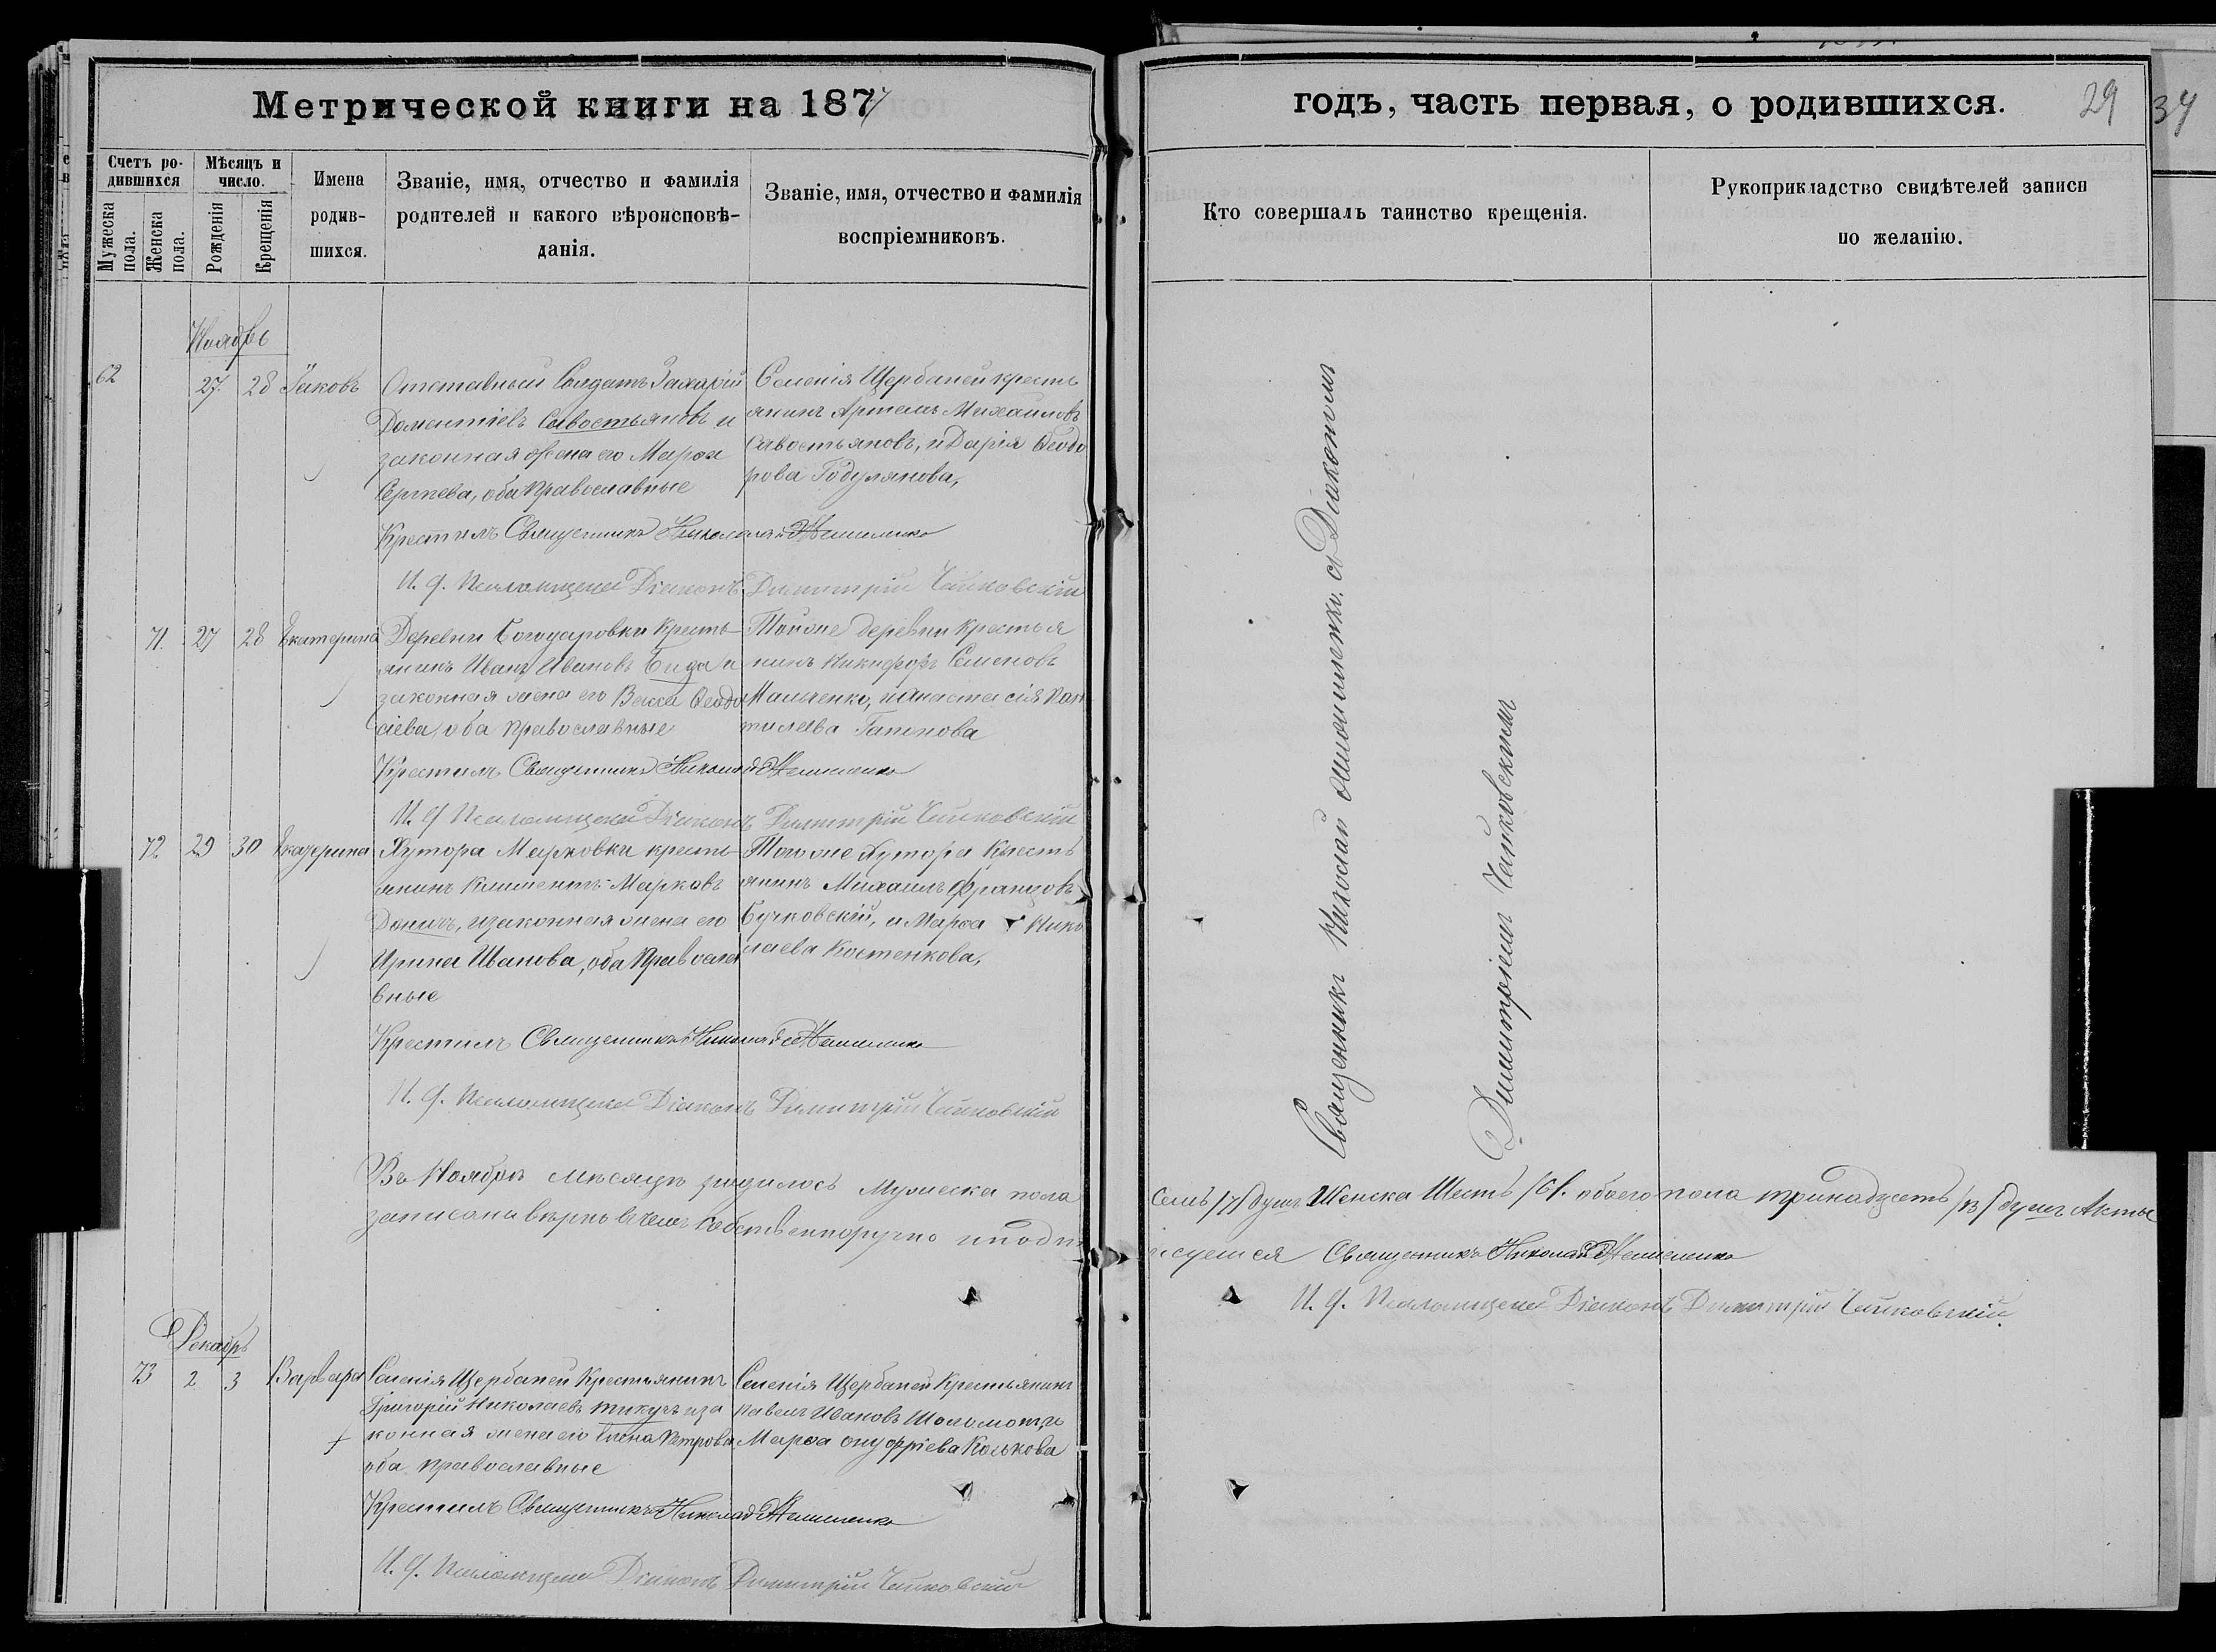 Метрической книги на 1877
годъ, часть первая, о родившихся.
29
34
Счетъ ро-
дившихся
Мѣсяцъ и
число.
Мужеска
пола.
Женска
пола.
Рожденія
Крещенія
Имена
родив-
шихся.
Званіе, имя, отчество и фамилія
родителей и какого вѣроисповѣ-
данія.
Званіе, имя, отчество и фамилія
воспріемниковъ.
Кто совершалъ таинство крещенія.
Рукоприкладство свидѣтелей записи
по желанію.
Ноябрь
62
27.
28
Іаковъ
Отставный Солдатъ Захарій
Доментіевъ Савостьяновъ и
законная жена его Марѳа
Сергѣева, оба православные
Селенія Щербаней кресть
янинъ Артемъ Михаиловъ
Савостьяновъ, и Дарія Ѳеодо
рова Годулянова,
Крестилъ Священникъ Николай
И. д. Псаломщика Діаконъ Димитрій Чайковскій
71.
27
28
Екатерина
Деревни Богодаровки Кресть
янинъ Иванъ Ивановъ Бида и
законная жена его Васса Ѳеодо
сіева, оба православные
Тойже деревни Крестья
нинъ Никифоръ Семеновъ
Мальченко, и Анастасія Пан
тилева Гапонова
Крестилъ Священникъ Николай
И. д. Псаломщика Діаконъ Димитрій Чайковскій
72
29
30
Екатерина
Хутора Марковки кресть
янинъ Климентъ Марковъ
Доничъ, изаконная жена его
Ирина Иванова, оба Правосла
вные
Тогоже Хутора Кресть
янинъ Михаилъ Францовъ
Бучковскій, и Марѳа Нико
лаева Костенкова,
Крестилъ Священникъ Николай
И. д. Псаломщика Діаконъ Димитрій Чайковскій
Священникъ Николай съ Діакономъ
Димитріемъ Чайковскимъ
Въ Ноябрѣ мѣсяцѣ родилось Мужеска пола
Семь /7/ душъ Женска Шесть /6/. обоего пола тринадцать /13/ душъ Акты
записаны вѣрно въ чемъ собственноручно иподп
исуемся Священникъ Николай
И. д. Псаломщика Діаконъ Димитрій Чайковскій.
Декабрь
73
2
3
Варвара
Селенія Щербаней Крестьянинъ
Григорій Николаевъ Тикулъ иза
конная жена его Елена Петрова
оба православные
Селенія Щербаней Крестьянинъ
Павелъ Ивановъ Шоломок, и
Марѳа Онуфріева Колькова
Крестилъ Священникъ Николай
И. д. Псаломщика Діаконъ Димитрій Чайковскій